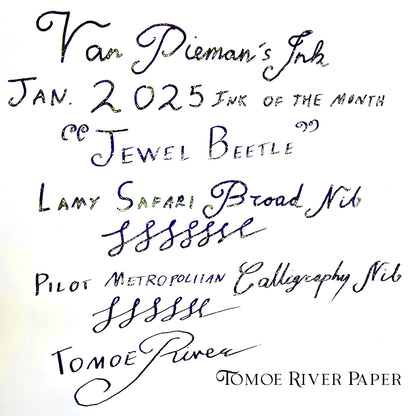 Van Dieman's Ink
JAN. 2025 INK OF THE MONTH
"JEWEL BEETLE"
LAMY SAFARI Broad Nib
PILOT METROPOLITAN Calligraphy Nib
TOMOE River
TOMOE RIVER PAPER